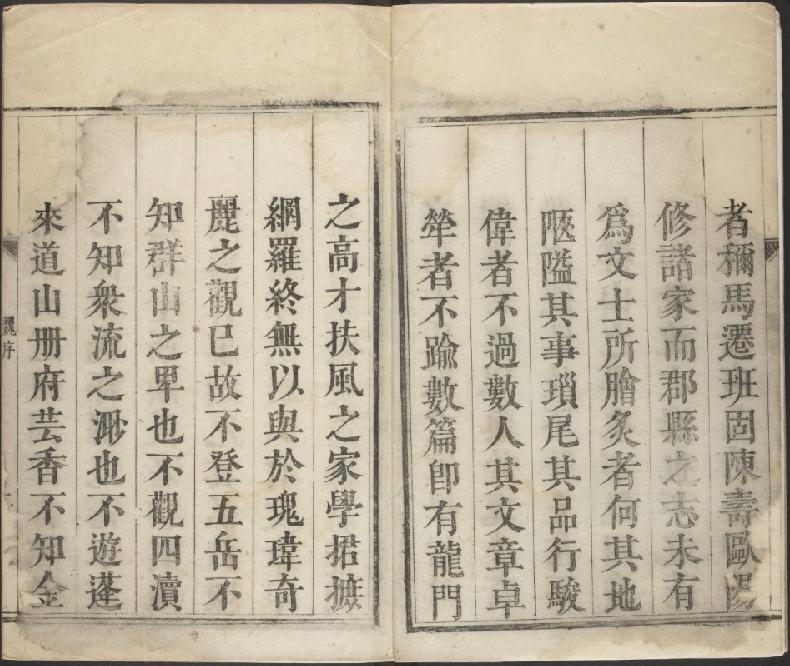 者稱馬遷班固陳壽歐陽
修諸家而郡縣之志未有
爲文士所膾炙者何其地
陿隘其事瑣尾其品行駿
偉者不過數人其文章卓
犖者不踰數篇卽有龍門
之高才扶風之家學捃摭
網羅終無以與於瑰瑋奇
麗之觀已故不登五岳不
知群山之卑也不觀四瀆
不知衆流之渺也不遊蓬
來道山册府芸香不知金
魏序